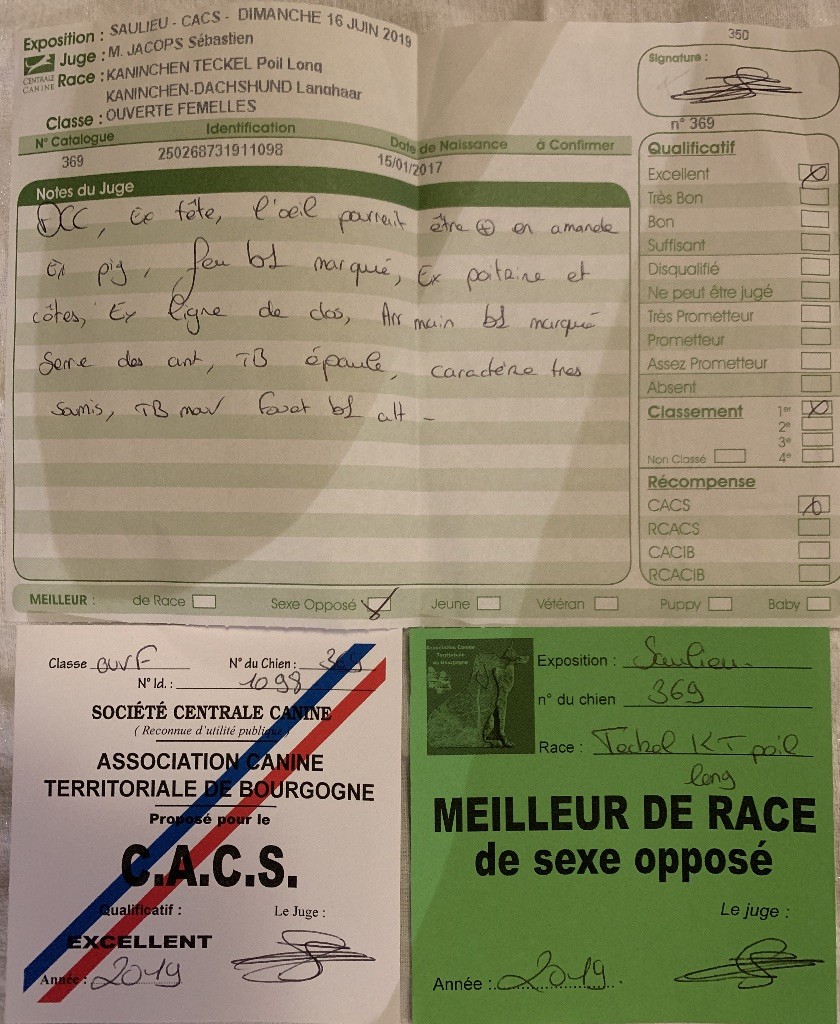 350
Exposition : SAULIEU - CACS - DIMANCHE 16 JUIN 2019
Juge : M. JACOPS Sébastien
CENTRALE CANINE
Race : KANINCHEN TECKEL Poil Long
KANINCHEN-DACHSHUND Langhaar
Classe : OUVERTE FEMELLES
N° Catalogue Identification Date de Naissance à Confirmer
369 250268731911098 15/01/2017
Notes du Juge
DCC, Ex tête, l'oeil pourrait être + en amande
Ex pig, feu bl marqué, Ex poitrine et
côtes, Ex ligne de dos, Arr main bl marqué
Serre des ant, TB épaule, caractère tres
Samis, TB mov fouet bl alt -
Signature :
n° 369
Qualificatif
Excellent
Très Bon
Bon
Suffisant
Disqualifié
Ne peut être jugé
Très Prometteur
Prometteur
Assez Prometteur
Absent
Classement 1er
2e
3e
Non Classé 4e
Récompense
CACS
RCACS
CACIB
RCACIB
MEILLEUR : de Race Sexe Opposé Jeune Vétéran Puppy Baby
Classe ouv F N° du Chien : 369
N° Id. : 1098
SOCIÉTÉ CENTRALE CANINE
( Reconnue d'utilité publique )
ASSOCIATION CANINE
TERRITORIALE DE BOURGOGNE
Proposé pour le
C.A.C.S.
Qualificatif : Le Juge :
EXCELLENT
Année : 2019
Association Canine
Territoriale
de Bourgogne
Exposition : Saulieu
n° du chien 369
Race : Teckel KT poil
long
MEILLEUR DE RACE
de sexe opposé
Le juge :
Année : 2019